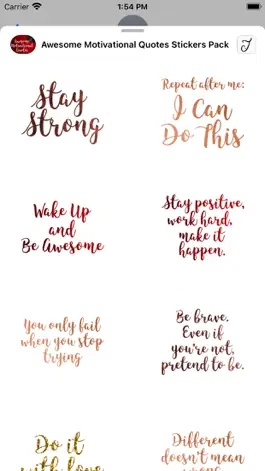 Carrier 1:54 PM
Awesome Motivational Quotes Stickers Pack
Stay
Strong
Repeat after me:
I Can
Do This
Wake Up
and
Be Awesome
Stay positive,
work hard,
make it
happen.
You only fail
when you stop
trying
Be brave.
Even if
you're not,
pretend to be.
Do it
with love
Different
doesn't mean
wrong